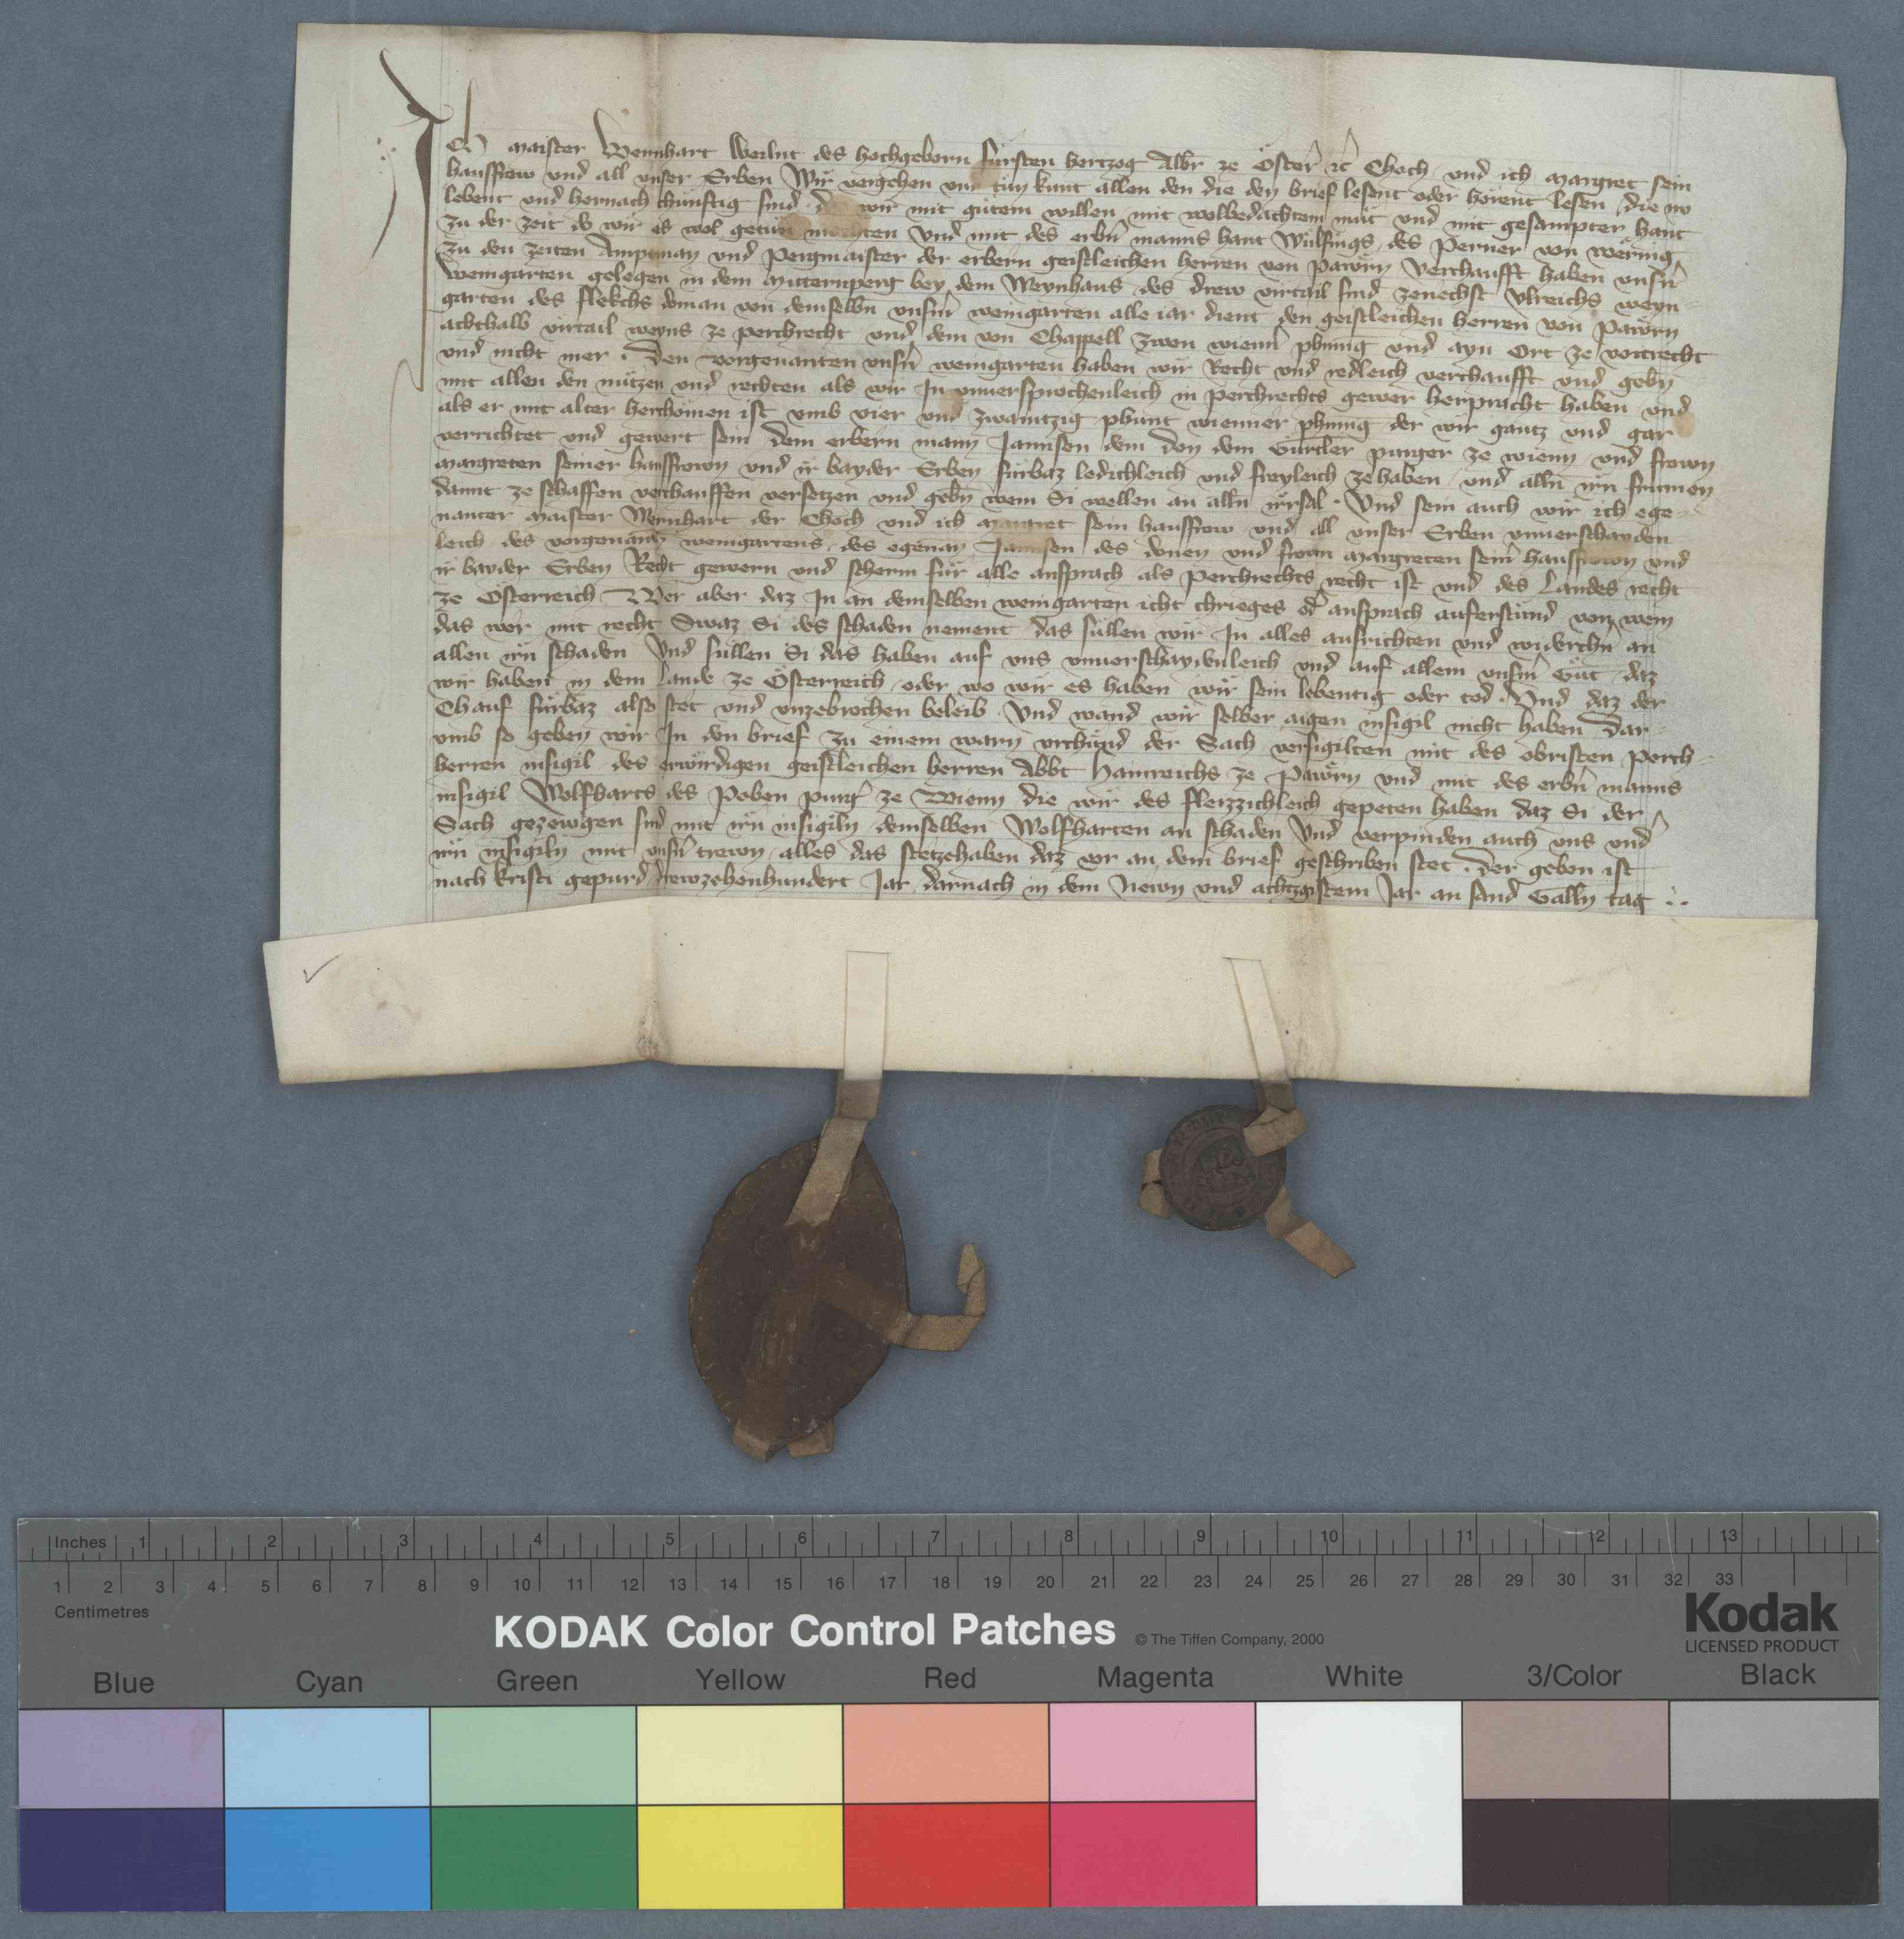 Ich maister Wernhart Weilnt des hochgeborn fürsten hertzog Albr ze Öster rc Choch und ich margret sein
hausfrow und all unser Erben Wir vergehen und tün kunt allen den die den brief lesent oder hörent lesen die nu
lebent und hernach chünftig sind daz wir mit gütem willen mit wolbedachtem müt und mit gesampter hant
zu der zeit do wir es wol getün mochten Und mit des erbn manns hant Wülfings des Perner von Wering
zu den zeiten Amptman und Pergmaister der erbern geistleichen herren von Pawrn Verchaufft haben unsn
weingarten gelegen in dem bey dem Meynhaus des drew virtail sind zenechst Ulreichs weyn
garten des flekchs dem man von demselbn unsm weingarten alle iar dient den geistleichen herren von Pawrn
achthalb virtail weyns ze perchrecht und dem von Chappell zwen wienn phnnig und ayn Ort ze voitrecht
und nicht mer . Den vorgenanten unsn weingarten haben wir Recht und redleich verchaufft und gebn
mit allen den nützen und rechten als wir In unversprochenleich in perchrechts gewer herpracht haben und
als er mit alter herchömen ist umb vier und zwaintzig phunt wienner phnnig der wir gantz und gar
verrichtet und gewert sein dem erbern mann Jannsen dem Don dem Gürtler purger ze wienn und frown
margreten seiner hausfrown und ir bayder Erben fürbaz ledichleich und freyleich ze haben und alln irn frumen
damit ze schaffen verchauffen versetzen und gebn wem Si wellen an alln irrsal . Und sein auch wir ich ege
nanter maister Wernhart der Choch und ich margret sein hausfrow und all unser Erben unverschayden
leich des vorgenantn weingartens des egenan Jannsen des donen und frown margreten seinr hausfrown und
ir bayder Erben Recht gewern und scherm für alle ansprach als Perchrechts recht ist und des Landes recht
ze Österreich Wer aber daz In an demselben weingarten icht chrieges od ansprach auferstund von wem
das wer mit recht Swaz Si des schaden nement das süllen wir In alles ausrichten und widerchn an
allen irn schaden Und süllen Si das haben auf uns unverschaydenleich und auf allem unsm Güt daz
wir haben in dem Lande ze Österreich oder wo wir es haben wir sein lebentig oder tod . Und daz der
Chauf fürbaz also stet und unzebrochen beleib . Und wand wir selber aigen insigil nicht haben Dar
umb so geben wir In den brief zu einem warn urchünd der Sach versigilten mit des obristen Perch
herren insigil des erwirdigen geistleichen herren Abbt Hainreichs ze Pawrn und mit des erbn manns
insigil Wolfharts des Poben purg ze Wienn die wir des fleizzichleich gepeten haben daz Si der
Sach gezewgen sind mit irn insigiln demselben Wolfharten an schaden Und verpinden auch uns und
irn insigiln mit unsn trewn alles das stetzehaben daz vor an dem brief geschriben stet . Der geben ist
nach kristi gepurd drewzehenhundert Jar darnach in dem Newn und achtzgistem Jar an sand Galln tag
Inches 1 2 3 4 5 6 7 8 9 10 11 12 13
1 2 3 4 5 6 7 8 9 10 11 12 13 14 15 16 17 18 19 20 21 22 23 24 25 26 27 28 29 30 31 32 33
Centimetres
KODAK Color Control Patches © The Tiffen Company, 2000
Kodak
LICENSED PRODUCT
Blue Cyan Green Yellow Red Magenta White 3/Color Black